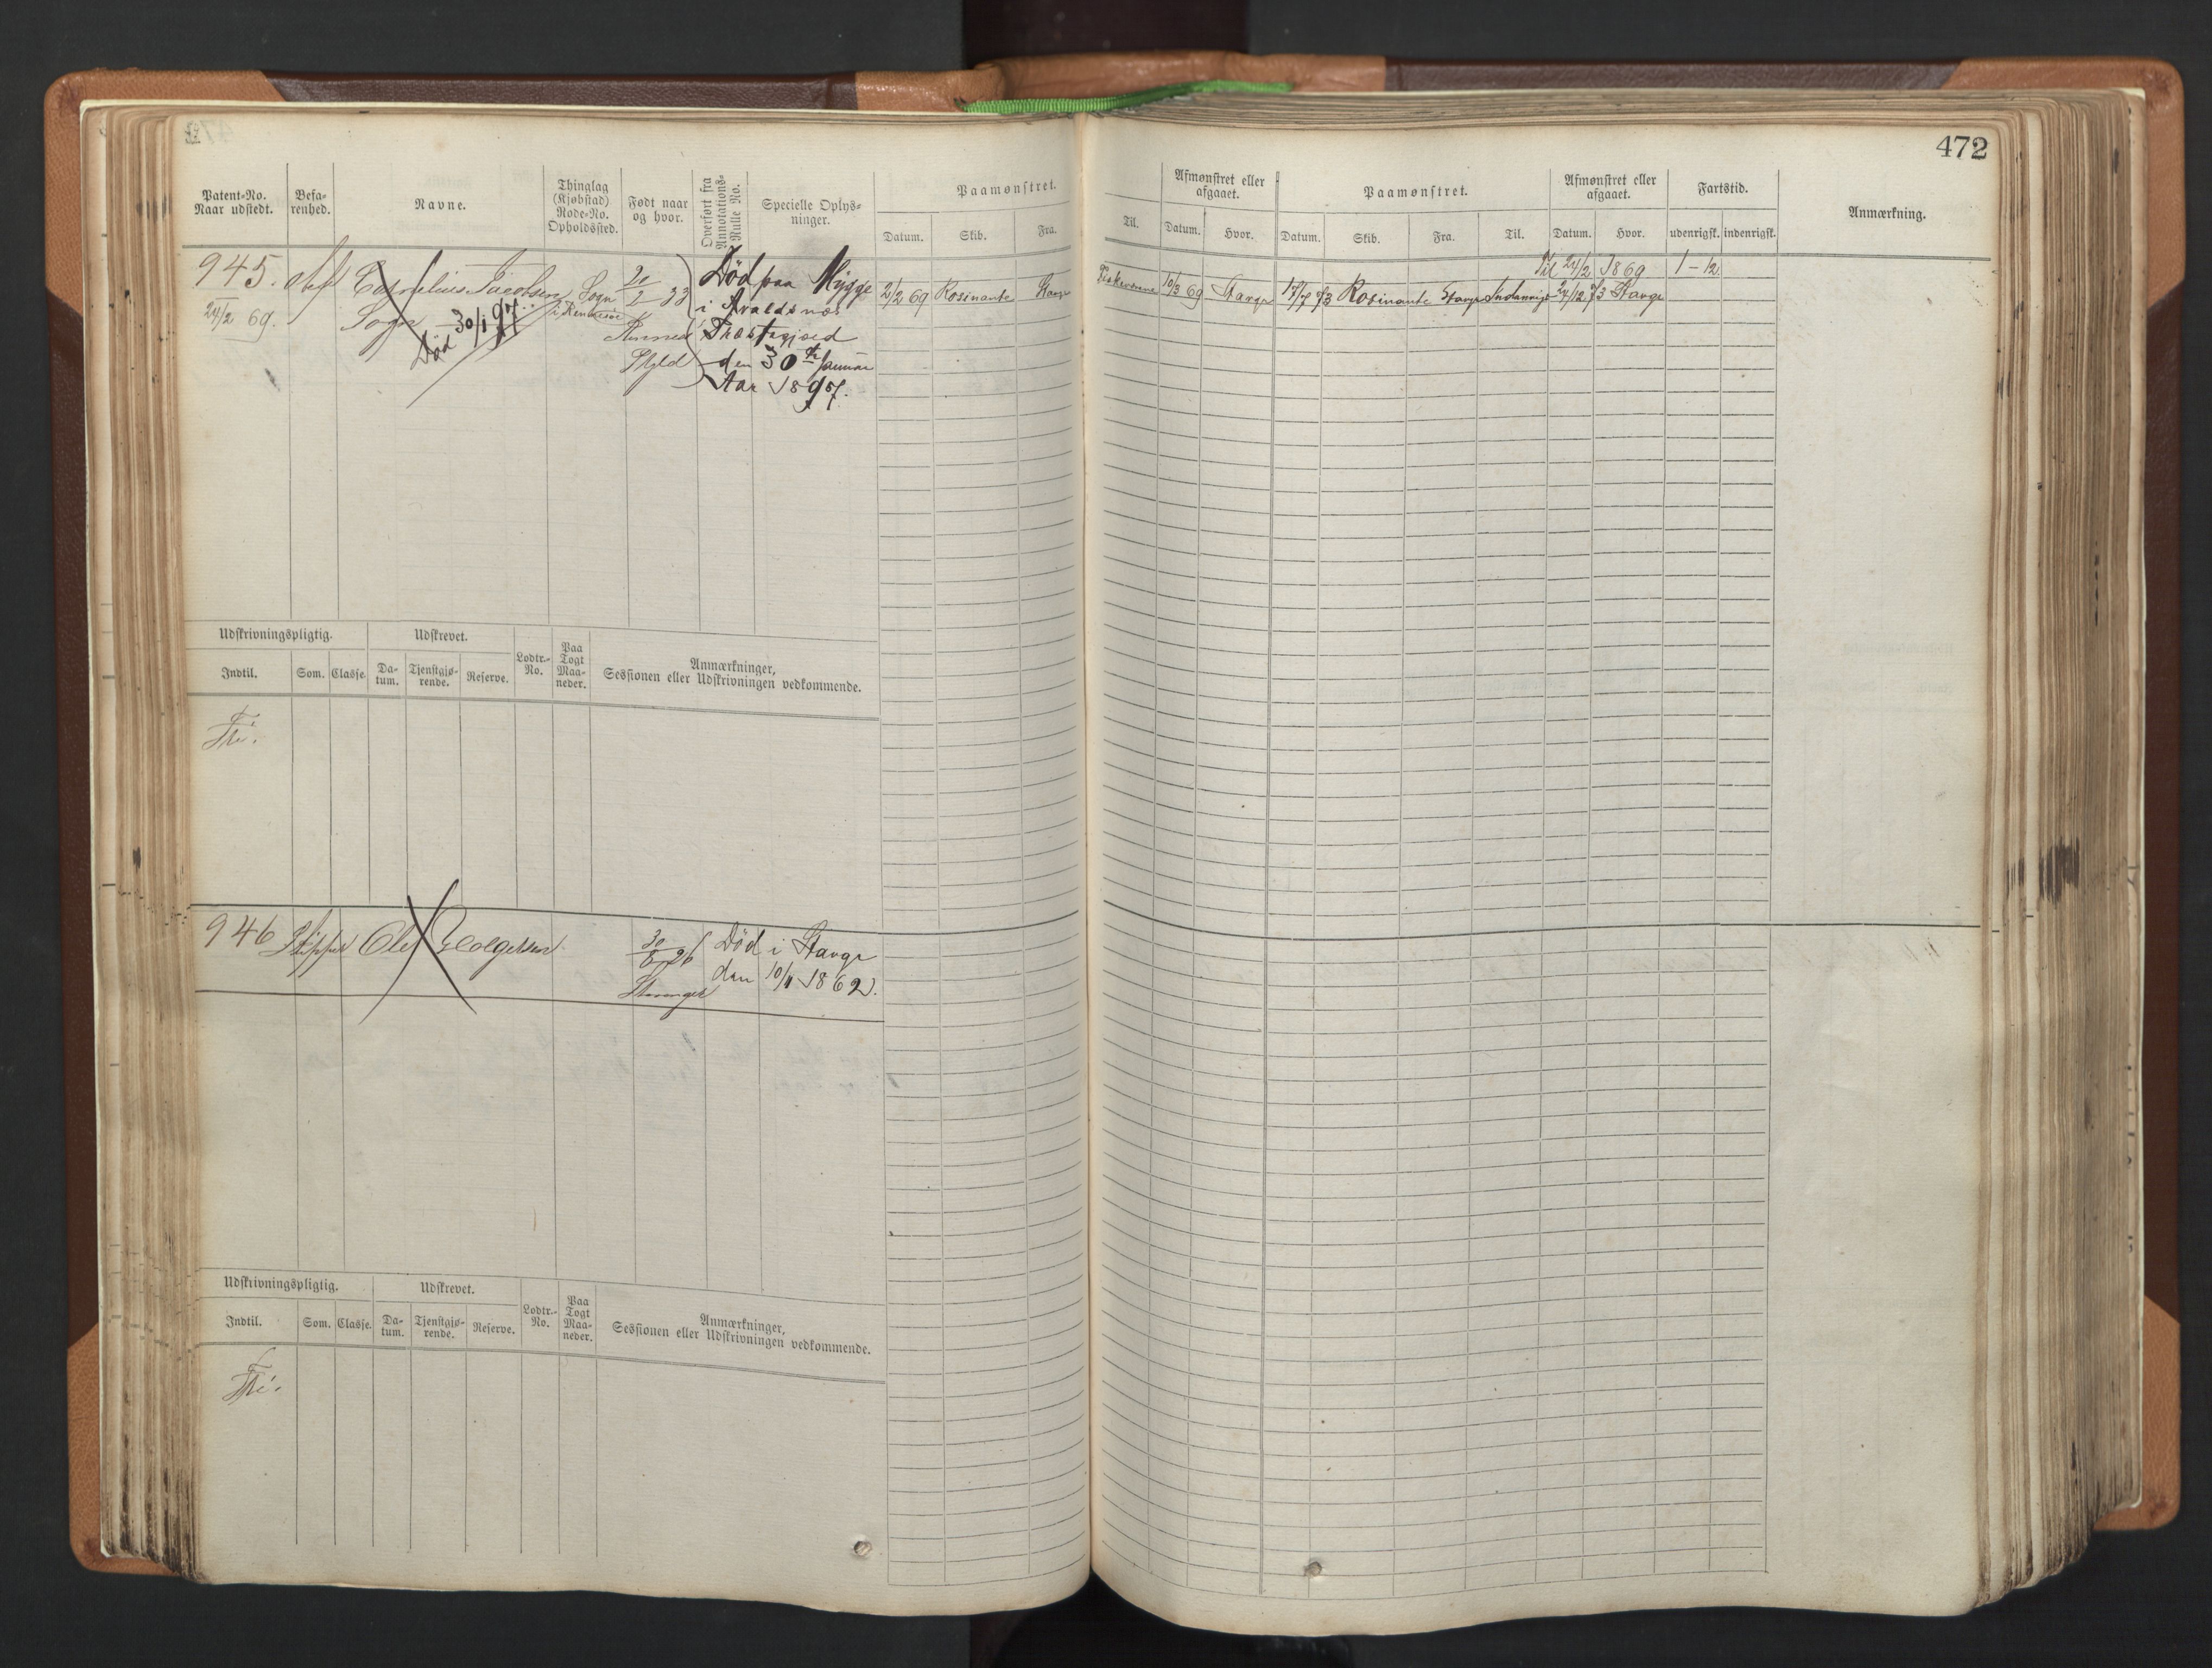 472
Patent-No.
Naar udstedt.
Befa-
renhed.
Navne.
Thinglag
(Kjøbstad)
Rode-No.
Opholdssted.
Født naar
og hvor.
Overført fra
Annotations-
Rulle No.
Specielle Oplys-
ninger.
Paamønstret.
Datum.
Skib.
Fra.
Til.
Afmønstret eller
afgaaet.
Datum.
Hvor.
Paamønstret.
Datum.
Skib.
Fra.
Til.
Afmønstret eller
afgaaet.
Datum.
Hvor.
Fartstid.
udenrigsk.
indenrigsk.
Anmærkning.
945.
24/2 69.
Cornelius Jacobsen
Sogn
Død 30/1 97.
Sogn
20/2 33
Død paa Mygge
i Avaldsnæs
Præstegjæld
den 30te Januar
Aar 1897.
2/2 69 Rosinante Stavgr
10/3 69 Stavgr
Til 24/2 1869 1 - 12
17/7 73 Rosinante Stavgr Indenrigs 24/12 73 Stavgr
Udskrivningspligtig.
Udskrevet.
Lodtr.-
No.
Paa
Togt
Maa-
neder.
Anmærkninger,
Sessionen eller Udskrivningen vedkommende.
Indtil.
Som.
Classe.
Da-
tum.
Tjenstgjø-
rende.
Reserve.
Fri.
946 Skipper Ole Holgersen
30/8 26
Stavanger
Død i Stavgr
den 10/11 1862.
Udskrivningspligtig.
Udskrevet.
Lodtr.-
No.
Paa
Togt
Maa-
neder.
Anmærkninger,
Sessionen eller Udskrivningen vedkommende.
Indtil.
Som.
Classe.
Da-
tum.
Tjenstgjø-
rende.
Reserve.
Fri.